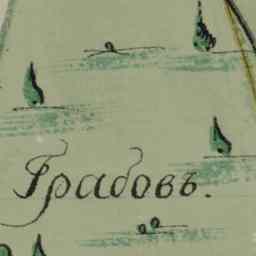 Грабовъ.